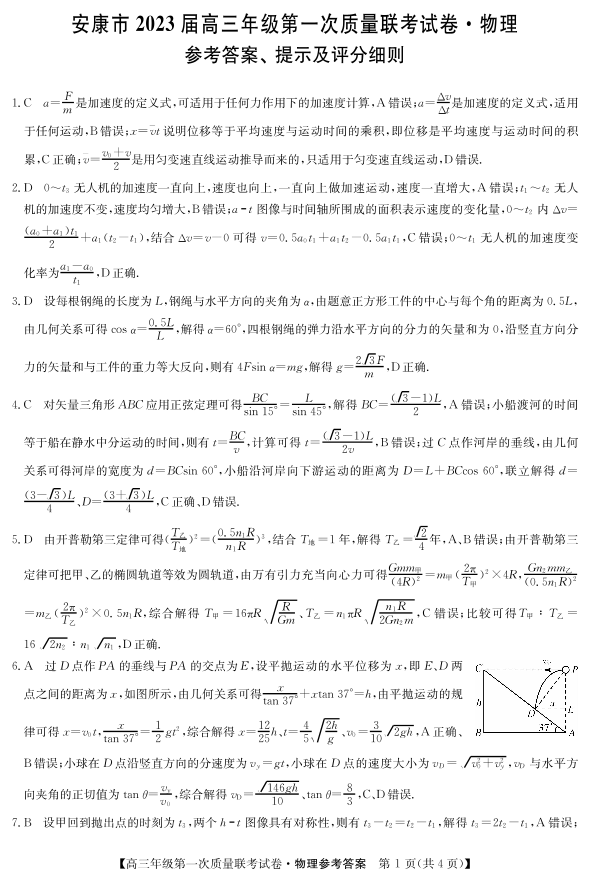 安康市 2023 届高三年级第一次质量联考试卷·物理
参考答案、提示及评分细则
1. C　a=F/m是加速度的定义式,可适用于任何力作用下的加速度计算,A 错误;a=Δv/Δt是加速度的定义式,适用
于任何运动,B 错误;x=v̄t 说明位移等于平均速度与运动时间的乘积,即位移是平均速度与运动时间的积
累,C 正确;v̄=(v₀+v)/2是用匀变速直线运动推导而来的,只适用于匀变速直线运动,D 错误.
2. D　0～t₃ 无人机的加速度一直向上,速度也向上,一直向上做加速运动,速度一直增大,A 错误;t₁～t₂ 无人
机的加速度不变,速度均匀增大,B 错误;a-t 图像与时间轴所围成的面积表示速度的变化量,0～t₂ 内 Δv=
(a₀+a₁)t₁/2+a₁(t₂-t₁),结合 Δv=v-0 可得 v=0.5a₀t₁+a₁t₂-0.5a₁t₁,C 错误;0～t₁ 无人机的加速度变
化率为(a₁-a₀)/t₁,D 正确.
3. D　设每根钢绳的长度为 L,钢绳与水平方向的夹角为 α,由题意正方形工件的中心与每个角的距离为 0.5L,
由几何关系可得 cos α=0.5L/L,解得 α=60°,四根钢绳的弹力沿水平方向的分力的矢量和为 0,沿竖直方向分
力的矢量和与工件的重力等大反向,则有 4Fsin α=mg,解得 g=2√3F/m,D 正确.
4. C　对矢量三角形 ABC 应用正弦定理可得BC/sin 15°=L/sin 45°,解得 BC=(√3-1)L/2,A 错误;小船渡河的时间
等于船在静水中分运动的时间,则有 t=BC/v,计算可得 t=(√3-1)L/2v,B 错误;过 C 点作河岸的垂线,由几何
关系可得河岸的宽度为 d=BCsin 60°,小船沿河岸向下游运动的距离为 D=L+BCcos 60°,联立解得 d=
(3-√3)L/4、D=(3+√3)L/4,C 正确、D 错误.
5. D　由开普勒第三定律可得(T乙/T地)²=(0.5n₁R/n₁R)³,结合 T地=1 年,解得 T乙=√2/4年,A、B 错误;由开普勒第三
定律可把甲、乙的椭圆轨道等效为圆轨道,由万有引力充当向心力可得Gmm甲/(4R)²=m甲(2π/T甲)²×4R,Gn₂mm乙/(0.5n₁R)²
=m乙(2π/T乙)²×0.5n₁R,综合解得 T甲=16πR√(R/Gm)、T乙=n₁πR√(n₁R/2Gn₂m),C 错误;比较可得 T甲:T乙=
16√2n₂:n₁√n₁,D 正确.
6. A　过 D 点作 PA 的垂线与 PA 的交点为 E,设平抛运动的水平位移为 x,即 E、D 两
点之间的距离为 x,如图所示,由几何关系可得x/tan 37°+xtan 37°=h,由平抛运动的规
律可得 x=v₀t,x/tan 37°=1/2gt²,综合解得 x=12/25h、t=4/5√(2h/g)、v₀=3/10√2gh,A 正确、
B 错误;小球在 D 点沿竖直方向的分速度为 vy=gt,小球在 D 点的速度大小为 vD=√(v₀²+vy²),vD 与水平方
向夹角的正切值为 tan θ=vy/v₀,综合解得 vD=√146gh/10、tan θ=8/3,C、D 错误.
C
v₀
P
h
D
B
37°
A
7. B　设甲回到抛出点的时刻为 t₃,两个 h-t 图像具有对称性,则有 t₃-t₂=t₂-t₁,解得 t₃=2t₂-t₁,A 错误;
【高三年级第一次质量联考试卷·物理参考答案　第 1 页(共 4 页)】